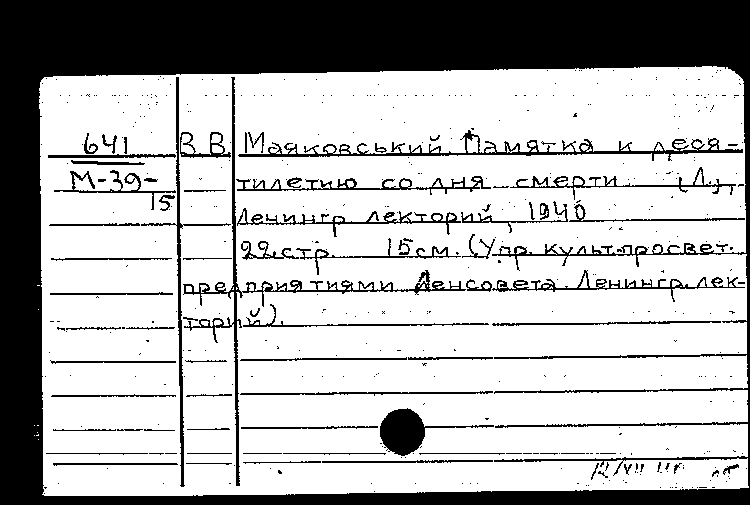 641 В.В. Маяковський. Памятка к деся-
М-39- тилетию со дня смерти [Л.],
15 Ленингр лекторий, 1940
22.стр. 15см. (Упр. культ-просвет.
предприятиями Ленсовета. Ленингр. лек-
торий).